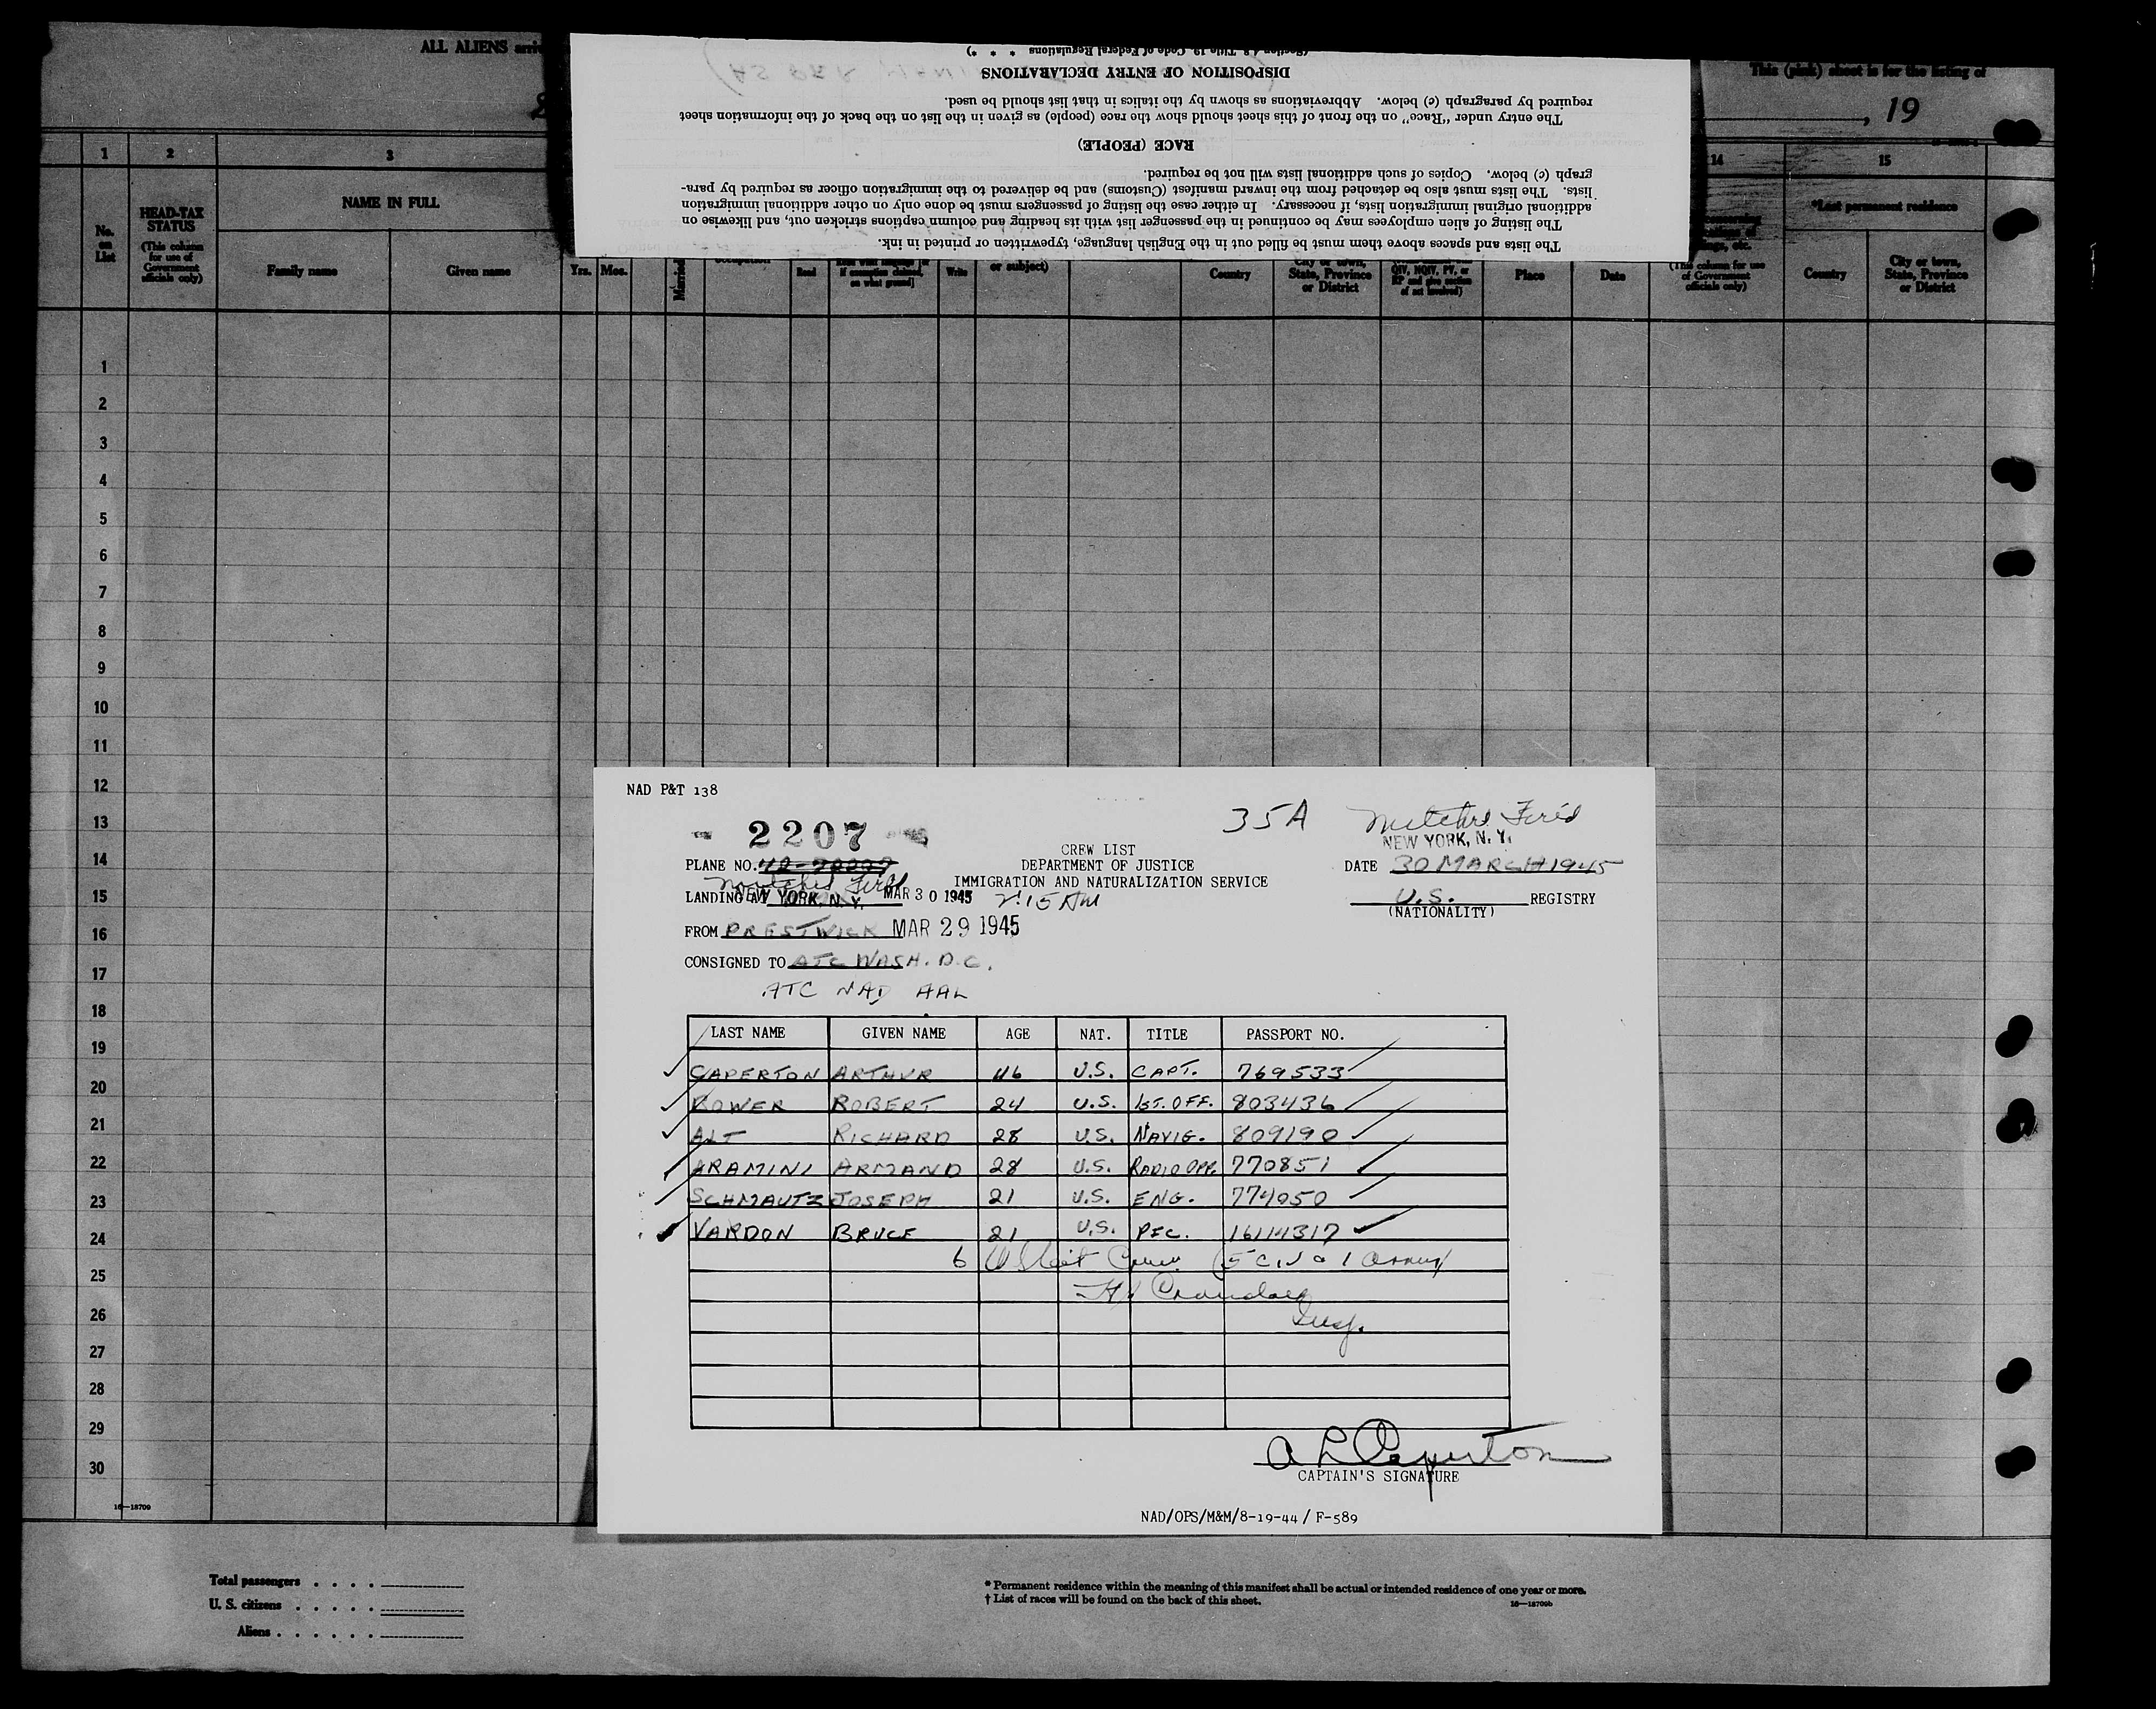 ALL ALIENS
This (pink) sheet is for the listing of
, 19
(Section 4.2, Title 19, Code of Federal Regulations * * *)
DISPOSITION OF ENTRY DECLARATIONS
required by paragraph (c) below. Abbreviations as shown by the italics in that list should be used.
The entry under "Race" on the front of this sheet should show the race (people) as given in the list on the back of the information sheet
RACE (PEOPLE)
graph (c) below. Copies of such additional lists will not be required.
lists. The lists must also be detached from the inward manifest (Customs) and be delivered to the immigration officer as required by para-
additional original immigration lists, if necessary. In either case the listing of passengers must be done only on other additional immigration
The listing of alien employees may be continued in the passenger list with its heading and column captions stricken out, and likewise on
The lists and spaces above them must be filled out in the English language, typewritten or printed in ink.
1 2 3 14 15
No. on List
HEAD-TAX STATUS
(This column for use of Government officials only)
NAME IN FULL
Family name Given name
Yrs. Mos.
Married
Read
Write
or subject)
Country
City or town, State, Province or District
QIV, NQIV, PV, or RP and give section of act involved)
Place Date
(This column for use of Government officials only)
*Last permanent residence
Country
City or town, State, Province or District
1
2
3
4
5
6
7
8
9
10
11
12
13
14
15
16
17
18
19
20
21
22
23
24
25
26
27
28
29
30
16—18709
NAD P&T 138
2207
35A
Mitchel Field
NEW YORK, N. Y.
CREW LIST
PLANE NO.
DEPARTMENT OF JUSTICE
DATE 30 MARCH 1945
Mitchel Field
IMMIGRATION AND NATURALIZATION SERVICE
LANDING AT NEW YORK, N. Y. MAR 30 1945 2:15 AM
U.S. REGISTRY
(NATIONALITY)
FROM PRESTWICK MAR 29 1945
CONSIGNED TO ATC WASH. D.C.
ATC NAD AAL
LAST NAME GIVEN NAME AGE NAT. TITLE PASSPORT NO.
CAPERTON ARTHUR 46 U.S. CAPT. 769533
BOWER ROBERT 24 U.S. 1ST. OFF. 803436
ALT RICHARD 28 U.S. NAVIG. 809190
ARAMINI ARMAND 28 U.S. RADIO OPR. 770851
SCHMAUTZ JOSEPH 21 U.S. ENG. 774050
VARDON BRUCE 21 U.S. PFC. 16114317
6 US Cit Crew (5 Civ & 1 Army)
Crandall
Insp.
A L Caperton
CAPTAIN'S SIGNATURE
NAD/OPS/M&M/8-19-44 / F-589
Total passengers . . . .
U. S. citizens . . . . .
Aliens . . . . . .
* Permanent residence within the meaning of this manifest shall be actual or intended residence of one year or more.
† List of races will be found on the back of this sheet.
16—18709b